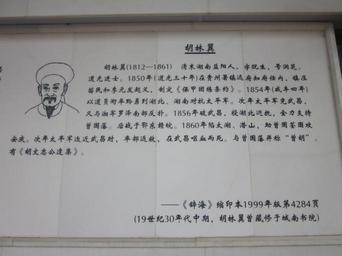 胡林翼
胡林翼(1812—1861) 清末湖南益阳人。字贶生,号润芝。
道光进士。1850年(道光三十年)在贵州署镇远府知府任内,镇压
苗民和李元发起义,制定《保甲团练条约》。1854年(咸丰四年)
以道员衔率黔勇到湖北、湖南对抗太平军。次年太平军克武昌,
又与湘军罗泽南部反扑。1856年破武昌,授湖北巡抚,全力支持
曾国藩。后战于鄂东赣皖。1860年陷太湖、潜山,助曾国荃围攻
安庆。次年太平军迫近武昌时,率部返救,在武昌呕血而死。与曾国藩并称“曾胡”。
有《胡文忠公遗集》。
——《辞海》缩印本1999年版第4284页
(19世纪30年代中期,胡林翼曾藏修于城南书院)